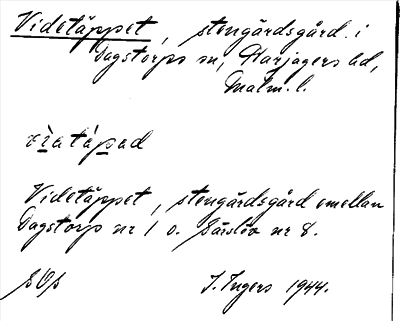 Videtäppet, stengärdsgård i
Dagstorps sn, Harjagers hd,
Malm. l.
Videtäppet, stengärdsgård emellan
Dagstorp nr 1 o. Särslöv nr 8.
I. Ingers 1944.